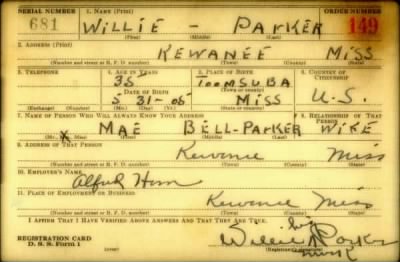 SERIAL NUMBER 1. NAME (Print) ORDER NUMBER
681 WILLIE - PARKER 149
(First) (Middle) (Last)
2. ADDRESS (Print)
KEWANEE MISS
(Number and street or R. F. D. number) (Town) (County) (State)
3. TELEPHONE 4. AGE IN YEARS 5. PLACE OF BIRTH 6. COUNTRY OF CITIZENSHIP
35 TOOMSUBA
DATE OF BIRTH (Town or county)
5 31-05 MISS U.S.
(Exchange) (Number) (Mo.) (Day) (Yr.) (State or country)
7. NAME OF PERSON WHO WILL ALWAYS KNOW YOUR ADDRESS 8. RELATIONSHIP OF THAT PERSON
X MAE BELL-PARKER WIFE
(Mr., Mrs., Miss) (First) (Middle) (Last)
9. ADDRESS OF THAT PERSON
Kewanee Miss
(Number and street or R. F. D. number) (Town) (County) (State)
10. EMPLOYER'S NAME
Alfred
11. PLACE OF EMPLOYMENT OR BUSINESS
Kewanee Miss
(Number and street or R. F. D. number) (Town) (County) (State)
I AFFIRM THAT I HAVE VERIFIED ABOVE ANSWERS AND THAT THEY ARE TRUE.
his
REGISTRATION CARD Willie X Parker
D. S. S. Form 1 mark
(Registrant's signature)